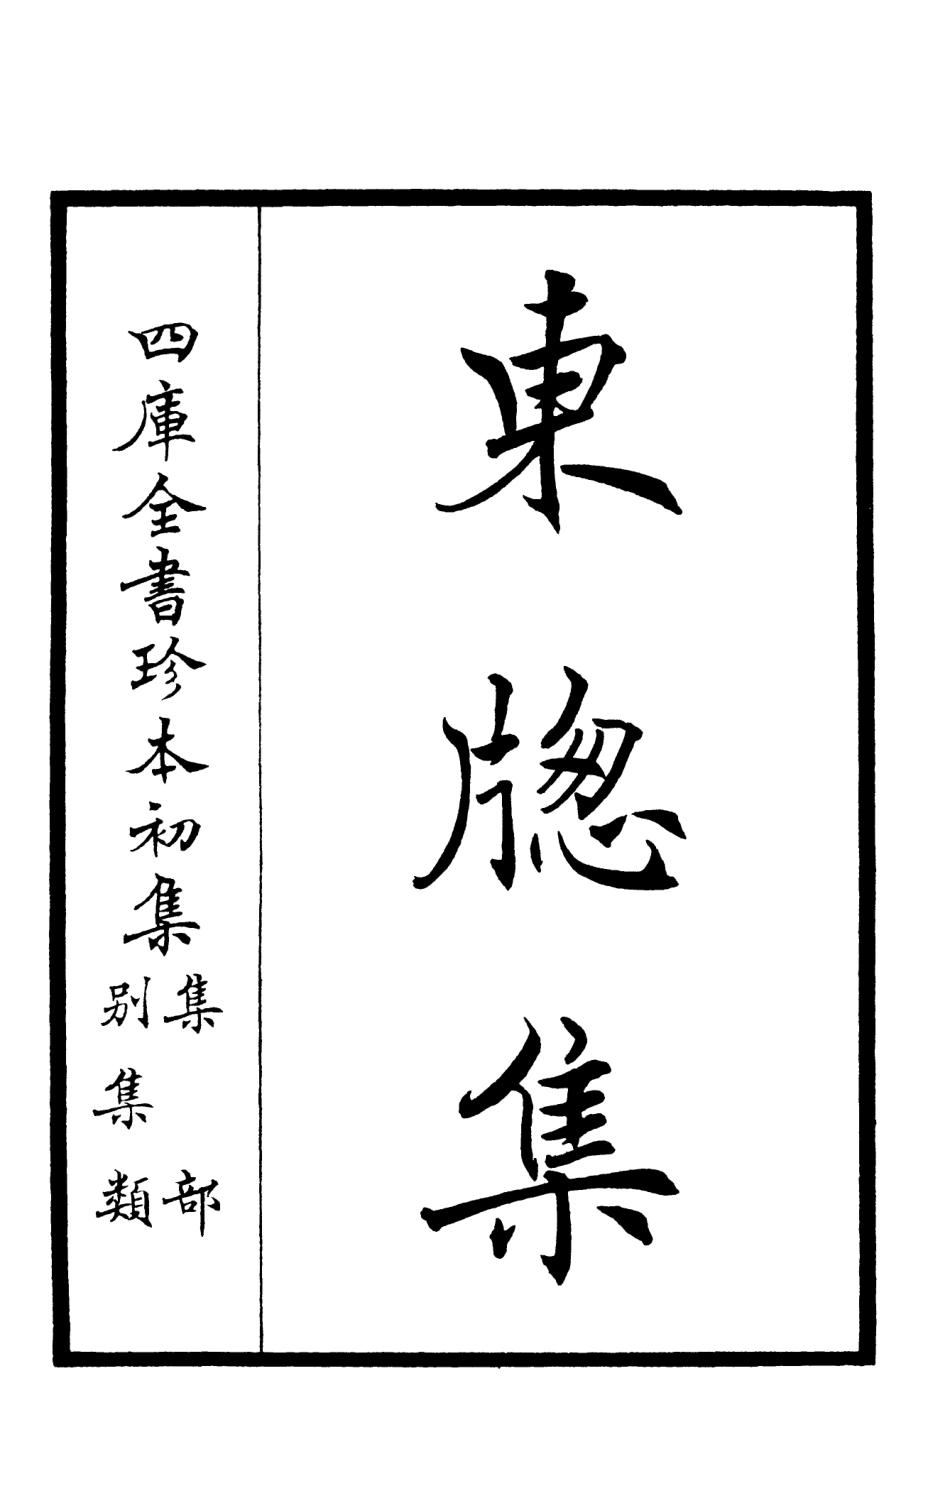 東牕集
四庫全書珍本初集
集部
別集類